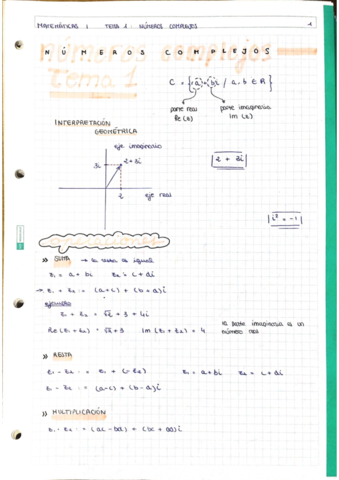 MATEMÁTICAS I TEMA 1: NÚMEROS COMPLEJOS 1
números complejos
NÚMEROS COMPLEJOS
Tema 1
C = { a + bi / a, b ∈ R }
parte real
Re (z)
parte imaginaria
Im (z)
INTERPRETACIÓN
GEOMÉTRICA
eje imaginario
3i
2+3i
2
eje real
2 + 3i
i² = -1
operaciones
» SUMA → la resta es igual
z₁ = a + bi z₂ = c + di
→ z₁ + z₂ = (a+c) + (b+d)i
ejemplo
z₁ + z₂ = √2 + 3 + 4i
Re (z₁ + z₂) = √2 + 3 Im (z₁ + z₂) = 4
la parte imaginaria es un
número real
» RESTA
z₁ - z₂ = z₁ + (-z₂) z₁ = a+bi z₂ = c + di
z₁ - z₂ = (a-c) + (b-d)i
» MULTIPLICACIÓN
z₁ · z₂ = (ac - bd) + (bc + ad)i